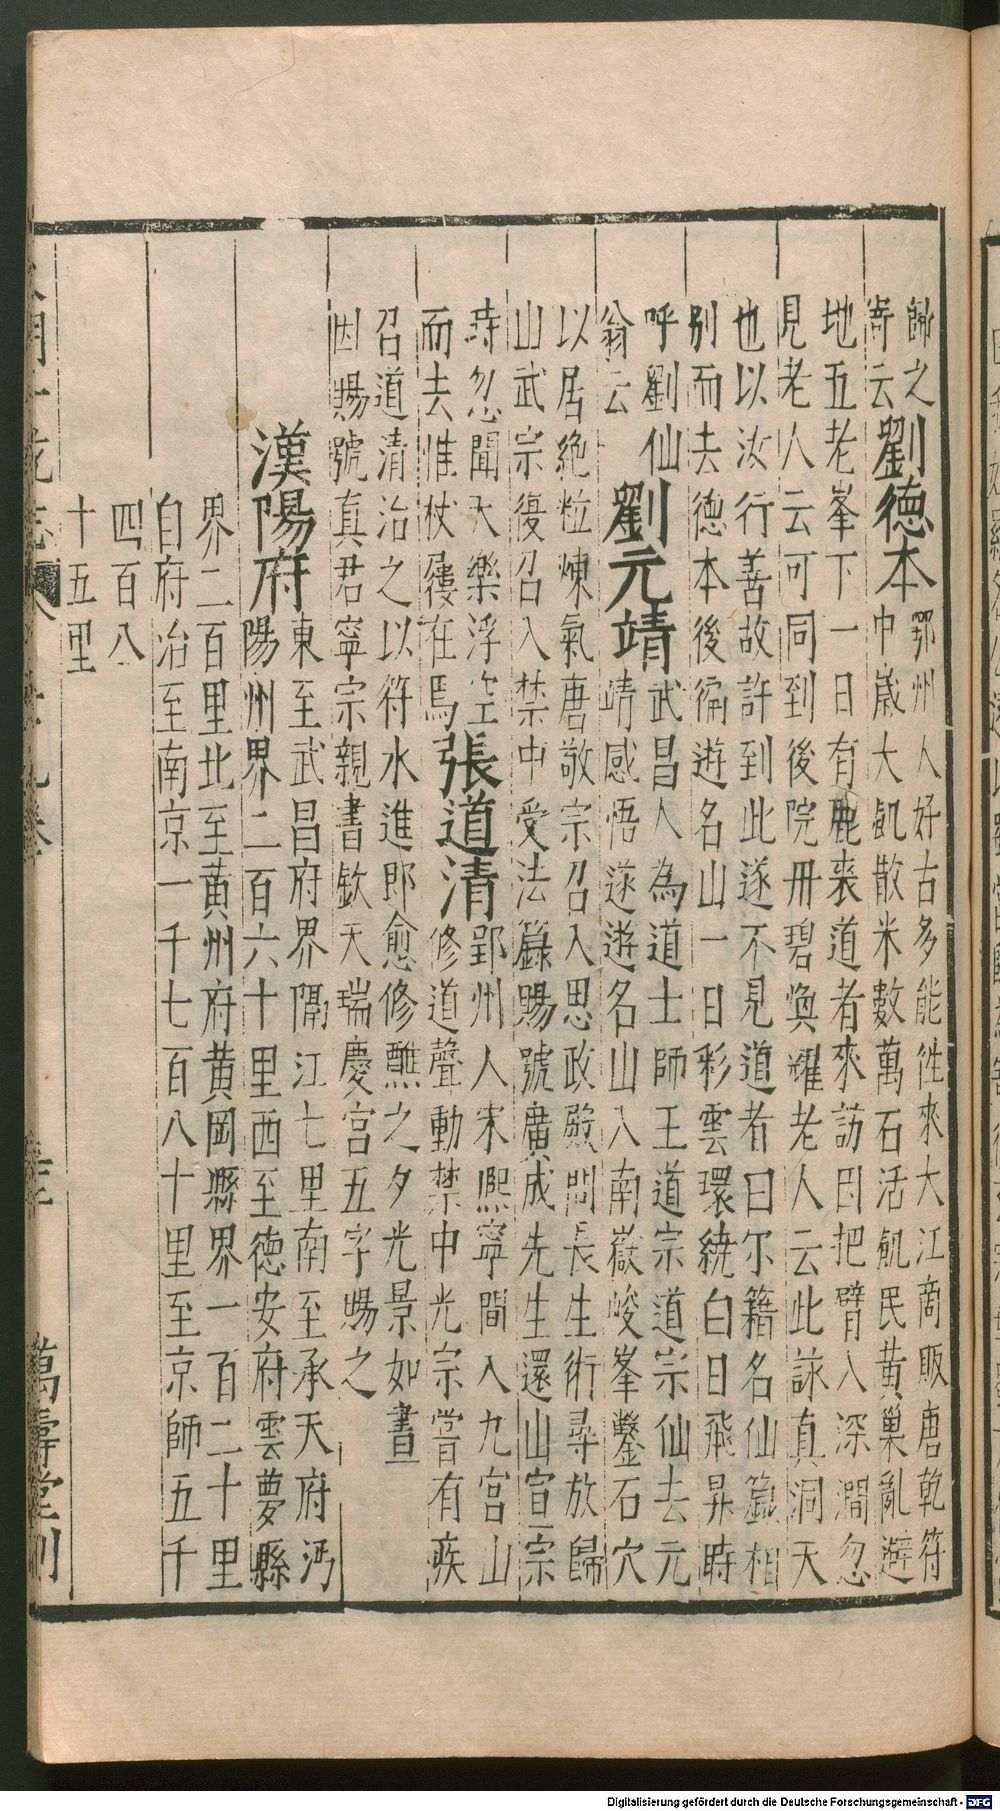 師之
寄云
劉德本
鄂州人好古多能徃來大江商販唐乾符
中歲大飢散米數萬石活飢民黄巢亂避
地五老峯下一日有鹿来道者來訪因把臂入深澗忽
見老人云可同到後院册碧煥耀老人云此詠真洞天
也以汝行善故許到此遂不見道者曰尔籍名仙籙相
别而去德本後徧遊名山一日彩雲環繞白日飛昇時
呼劉仙
翁云
劉元靖
武昌人為道士師王道宗道宗仙去元
靖感悟遂遊名山入南嶽峻峯鑿石穴
以居絶粒煉氣唐敬宗召入思政殿問長生術尋放歸
山武宗復召入禁中受法籙賜號廣成先生還山宣宗
時忽聞天樂浮空
而去惟杖屨在焉
張道清
郢州人宋熙寧間入九宮山
修道聲動禁中光宗嘗有疾
召道清治之以符水進即愈修醮之夕光景如晝
因賜號真君寧宗親書欽天瑞慶宮五字賜之
漢陽府
東至武昌府界隔江七里南至承天府沔
陽州界二百六十里西至德安府雲夢縣
界二百里北至黄州府黄岡縣界一百二十里
自府治至南京一千七百八十里至京師五千
四百八
十五里
萬壽堂刊
Digitalisierung gefördert durch die Deutsche Forschungsgemeinschaft - DFG